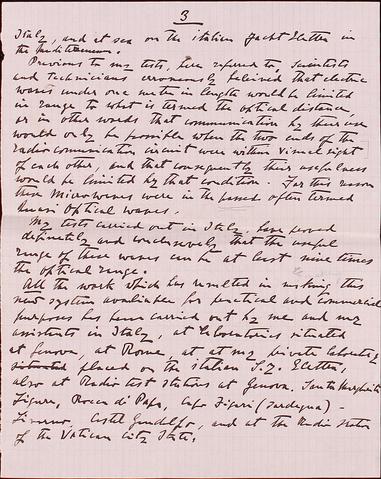 3
Italy, and at sea on the italian Yacht Elettra in
the Mediterranean.
Previous to my tests, here referred to, Scientists
and Technicians erroneously believed that electric
waves under one metre in length would be limited
in range to what is termed the optical distance
or in other words that communication by their use
would only be possible when the two ends of the
radio communication circuit were within visual sight
of each other, and that consequently their usefulness
would be limited by that condition. For this reason
these Microwaves were in the passed often termed
Quasi Optical waves.
My tests carried out in Italy have proved
definitely and conclusively that the useful
range of these waves can be at least nine times
the optical range.
All the work which has resulted in making this
new system available for practical and commercial
purposes has been carried out by me and my
assistents in Italy, at laboratories situated
at Genova, at Rome, at at my private laboratory
situated placed on the italian S.Y. Elettra,
also at Radio test Stations at Genova, Santa Margherita
Ligure, Rocca di Papa, Capo Figari (Sardegna) -
Livorno, Castel Gandolfo, and at the Radio Station
of the Vatican City State.